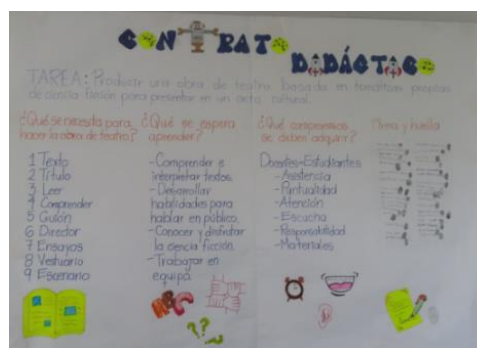 CONTRATO DIDÁCTICO
TAREA: Producir una obra de teatro basada en temáticas propias
de ciencia ficción para presentar en un acto cultural.
¿Qué se necesita para
hacer la obra de teatro?
1 Texto
2 Título
3 Leer
4 Comprender
5 Guión
6 Director
7 Ensayos
8 Vestuario
9 Escenario
¿Qué se espera
aprender?
-Comprender e
interpretar textos.
-Desarrollar
habilidades para
hablar en público.
-Conocer y disfrutar
la ciencia ficción.
-Trabajar en
equipo.
¿Qué compromisos
se deben adquirir?
Docentes-Estudiantes
-Asistencia
-Puntualidad
-Atención
-Escucha
-Responsabilidad
-Materiales
Firma y huella
ABC
???